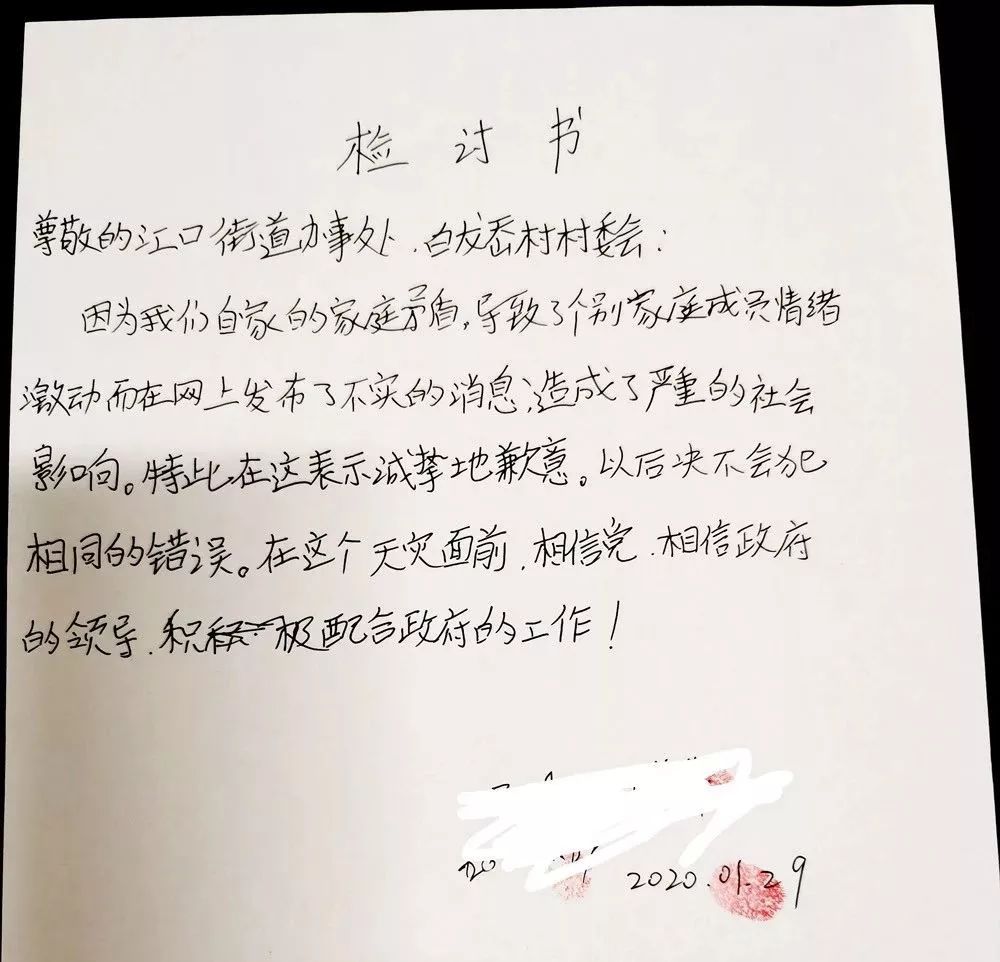 检讨书
尊敬的江口街道办事处、白龙岙村村委会：
因为我们自家的家庭矛盾,导致了个别家庭成员情绪
激动而在网上发布了不实的消息,造成了严重的社会
影响。特此在这表示诚挚地歉意。以后决不会犯
相同的错误。在这个天灾面前、相信党、相信政府
的领导、积极配合政府的工作！
2020.01.29